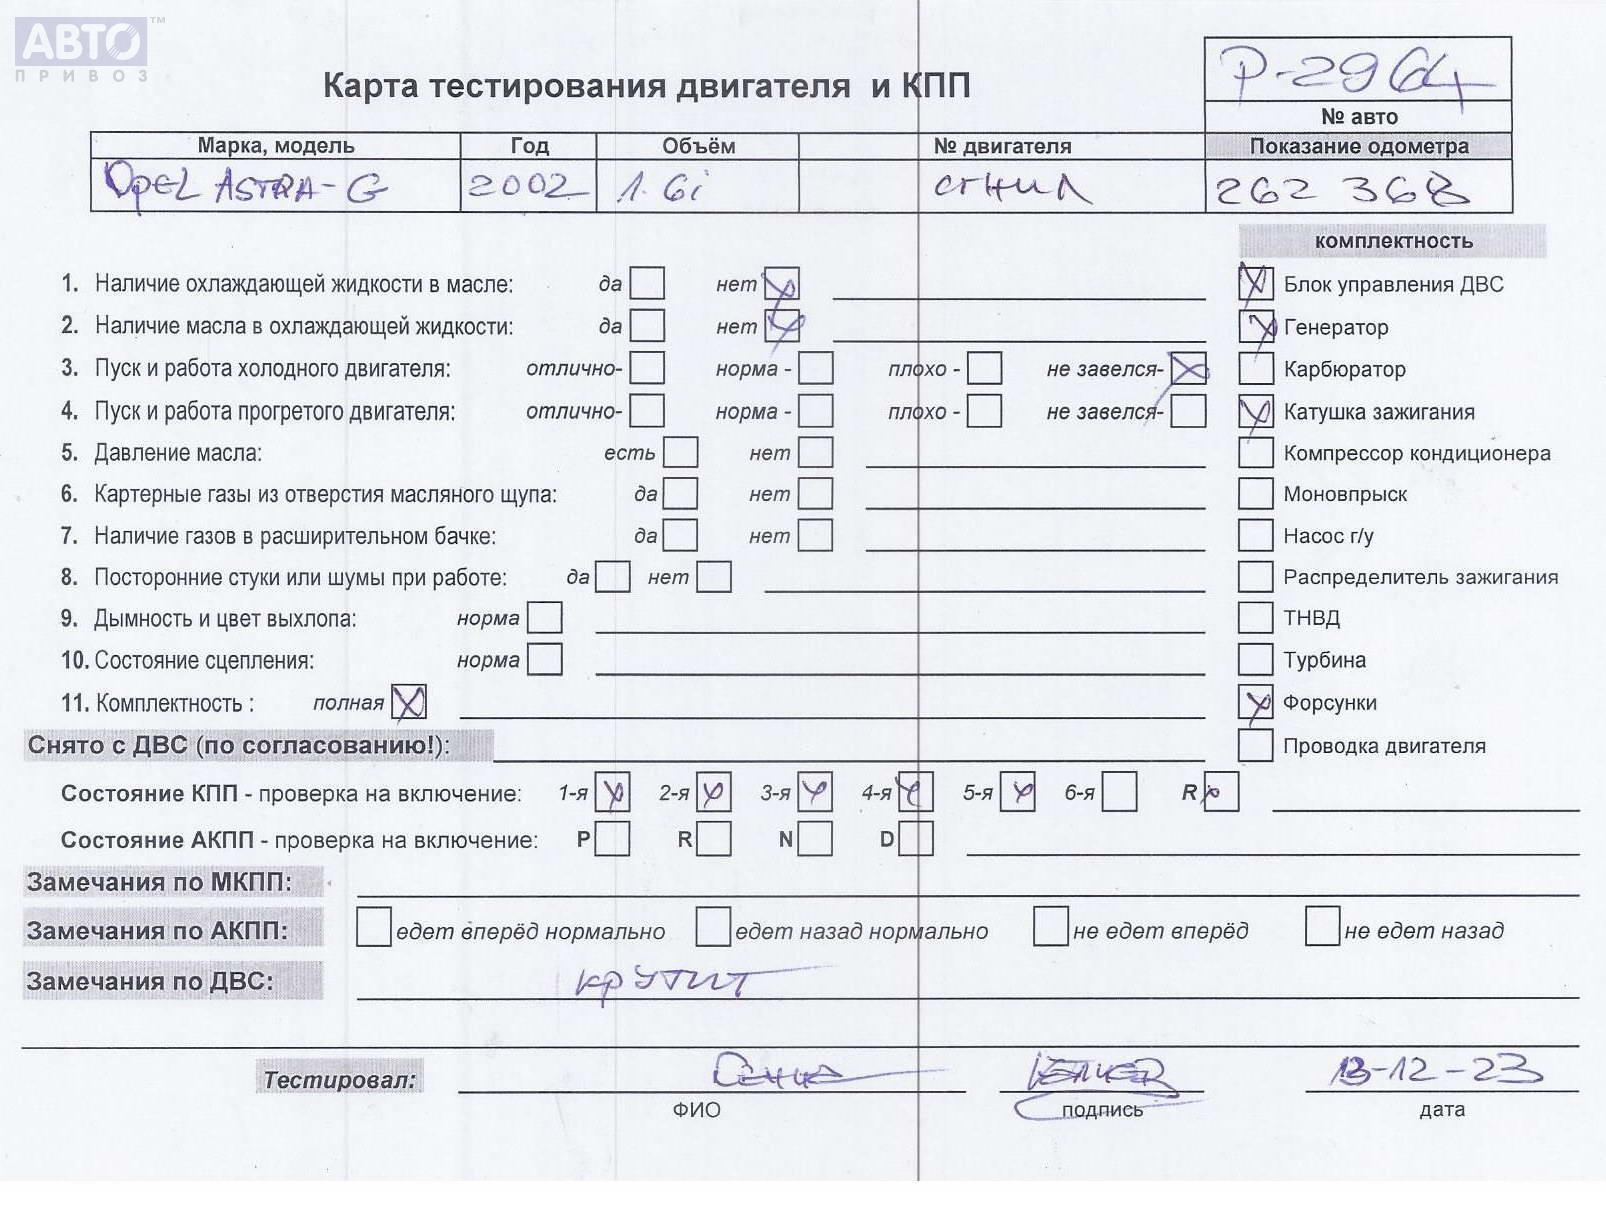 АВТО™
ПРИВОЗ
Карта тестирования двигателя и КПП
Р-2964
№ авто
Марка, модель Год Объём № двигателя Показание одометра
Opel ASTRA-G 2002 1.6i сгнил 262 368
комплектность
1. Наличие охлаждающей жидкости в масле: да нет Блок управления ДВС
2. Наличие масла в охлаждающей жидкости: да нет Генератор
3. Пуск и работа холодного двигателя: отлично- норма - плохо - не завелся- Карбюратор
4. Пуск и работа прогретого двигателя: отлично- норма - плохо - не завелся- Катушка зажигания
5. Давление масла: есть нет Компрессор кондиционера
6. Картерные газы из отверстия масляного щупа: да нет Моновпрыск
7. Наличие газов в расширительном бачке: да нет Насос г/у
8. Посторонние стуки или шумы при работе: да нет Распределитель зажигания
9. Дымность и цвет выхлопа: норма ТНВД
10. Состояние сцепления: норма Турбина
11. Комплектность : полная Форсунки
Снято с ДВС (по согласованию!): Проводка двигателя
Состояние КПП - проверка на включение: 1-я 2-я 3-я 4-я 5-я 6-я R
Состояние АКПП - проверка на включение: P R N D
Замечания по МКПП:
Замечания по АКПП: едет вперёд нормально едет назад нормально не едет вперёд не едет назад
Замечания по ДВС: крутит
Тестировал: 13-12-23
ФИО подпись дата